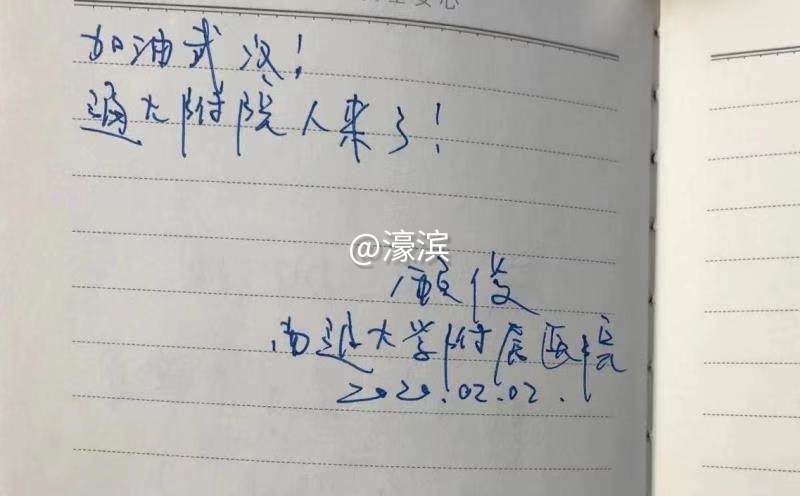 加油武汉!
通大附院人来了!
@濠滨
顾俊
南通大学附属医院
2020.02.02.